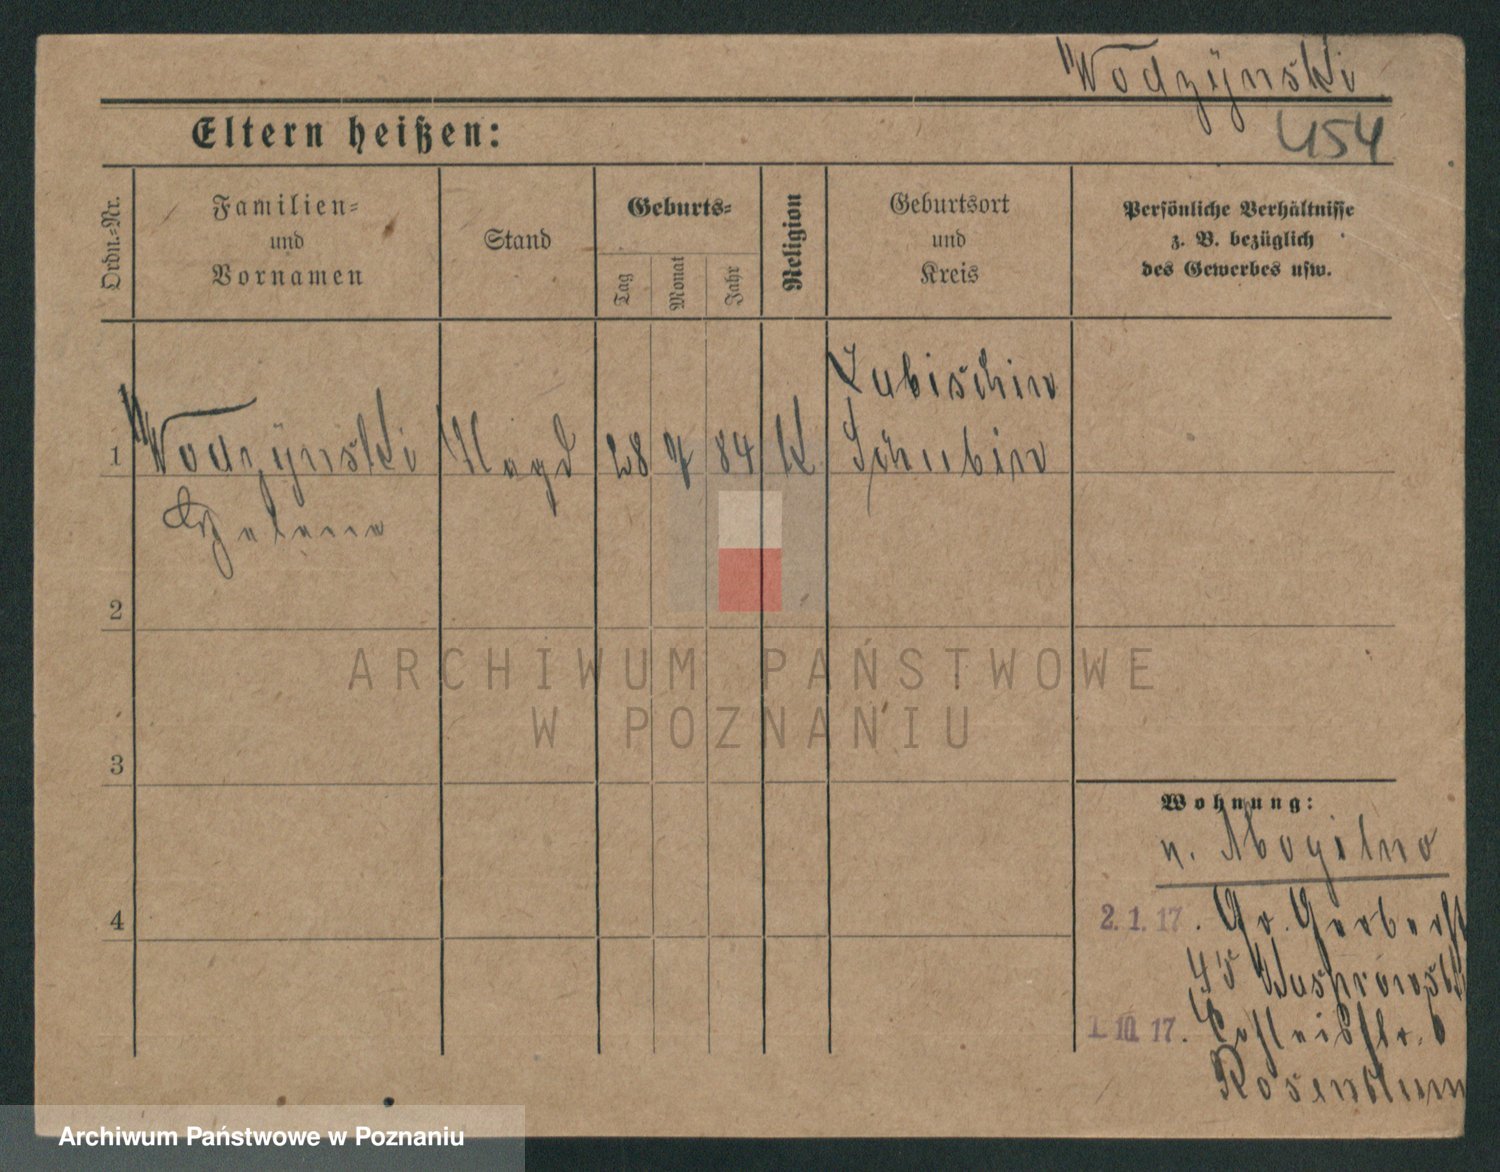 Wodzÿnski
454
Eltern heißen:
Ordn.=Nr.
Familien=
und
Vornamen
Stand
Geburts=
Tag
Monat
Jahr
Religion
Geburtsort
und
Kreis
Persönliche Verhältnisse
z. B. bezüglich
des Gewerbes usw.
1
Wodzÿnski
Magd
28
9
84
K
Lubischin
Schubin
Helene
2
ARCHIWUM PAŃSTWOWE
W POZNANIU
3
Wohnung:
n. Mogilno
4
2.1.17. Gr. Gerberst
45
1. 10 17.
6
Rosenblum
Archiwum Państwowe w Poznaniu